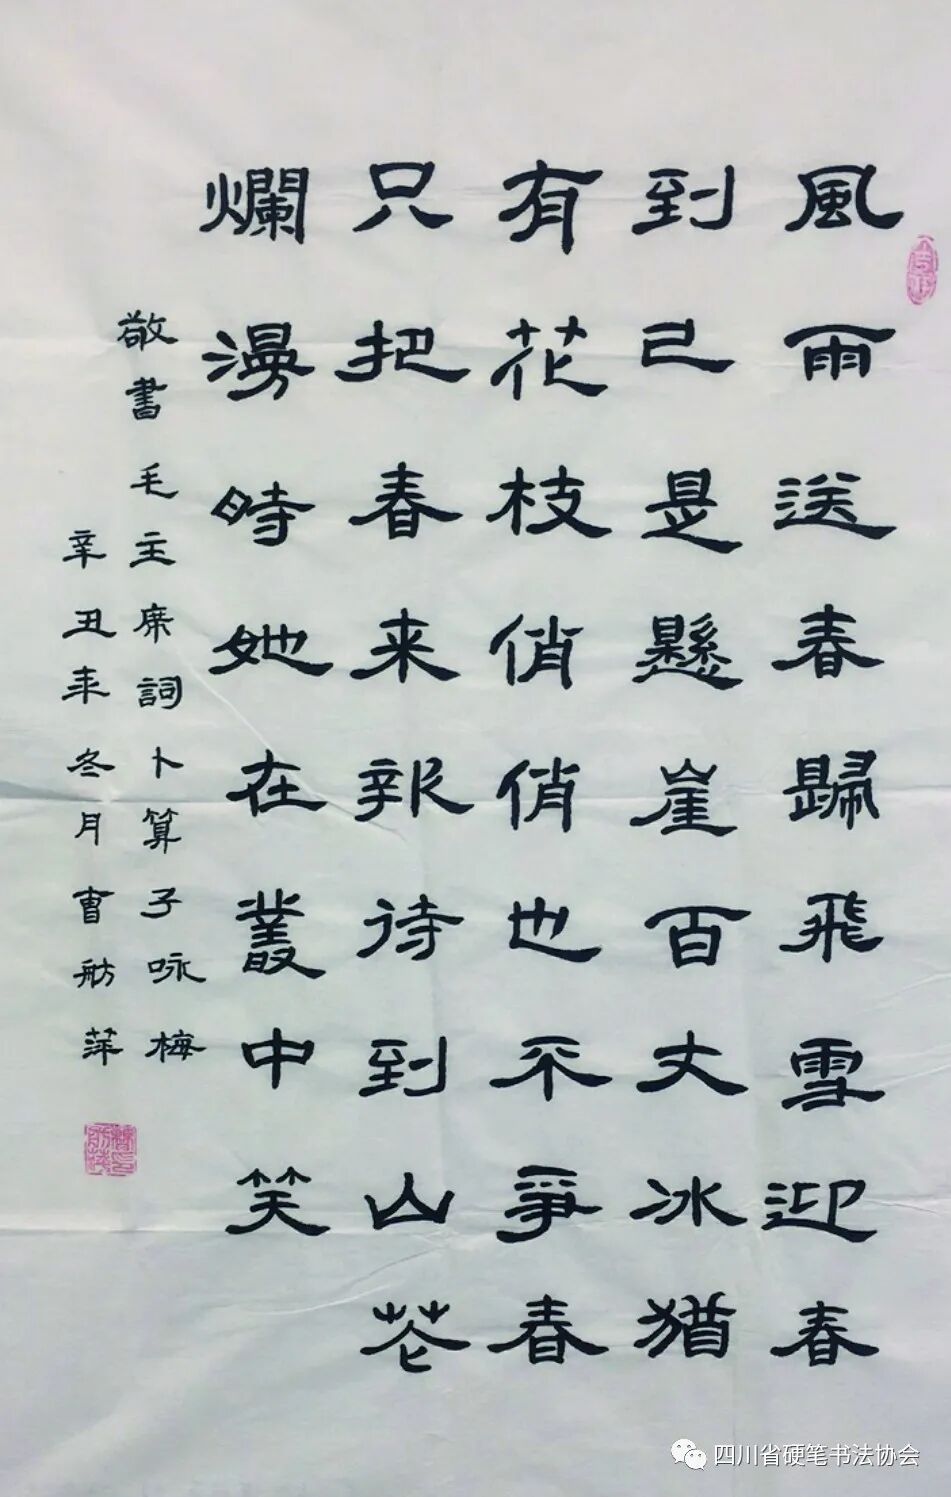 風雨送春歸飛雪迎春
到已是懸崖百丈冰猶
有花枝俏俏也不爭春
只把春来報待到山花
爛漫時她在叢中笑
敬書毛主席詞卜算子咏梅
辛丑年冬月曹舫萍
四川省硬笔书法协会